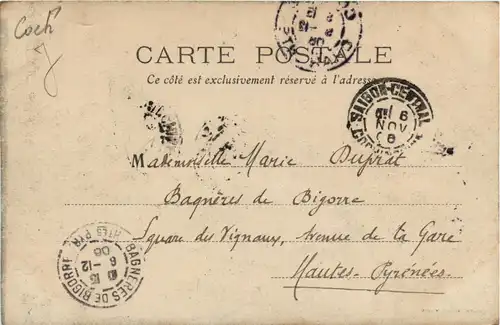 Coch
CARTE POSTALE
Ce côté est exclusivement réservé à l'adresse
SAIGON-CENTRAL
6
NOV
06
Mademoiselle Marie Duprat
Bagnères de Bigorre
Square des Vignaux, Avenue de la Gare
Hautes-Pyrénées.
BAGNERES DE BIGORRE
15
6-12
06
HTES PYR.